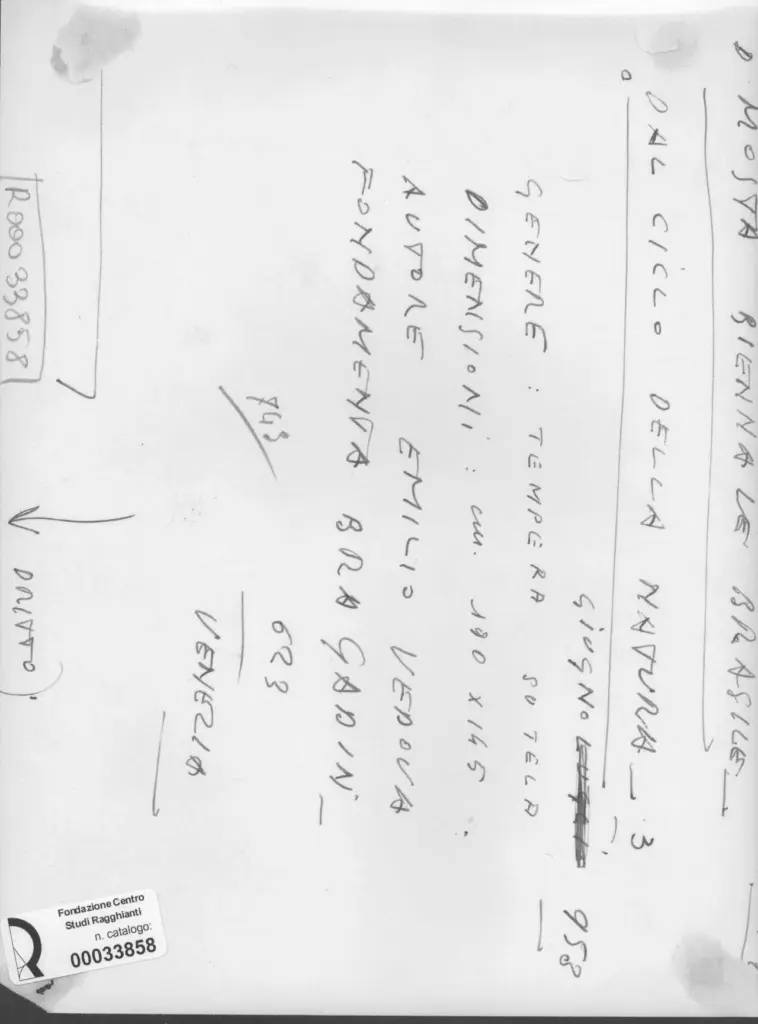 MOSTA BIENNALE BRASILE
DAL CICLO DELLA NATURA_ 3
GIUGNO 958
GENERE : TEMPERA SO TELA
DIMENSIONI : cm. 190 x 145.
AUTORE EMILIO VEDOVA
FONDAMENTA BRAGADIN
743
623
VENEZIA
DRITTO
R00033858
Fondazione Centro
Studi Ragghianti
n. catalogo:
00033858